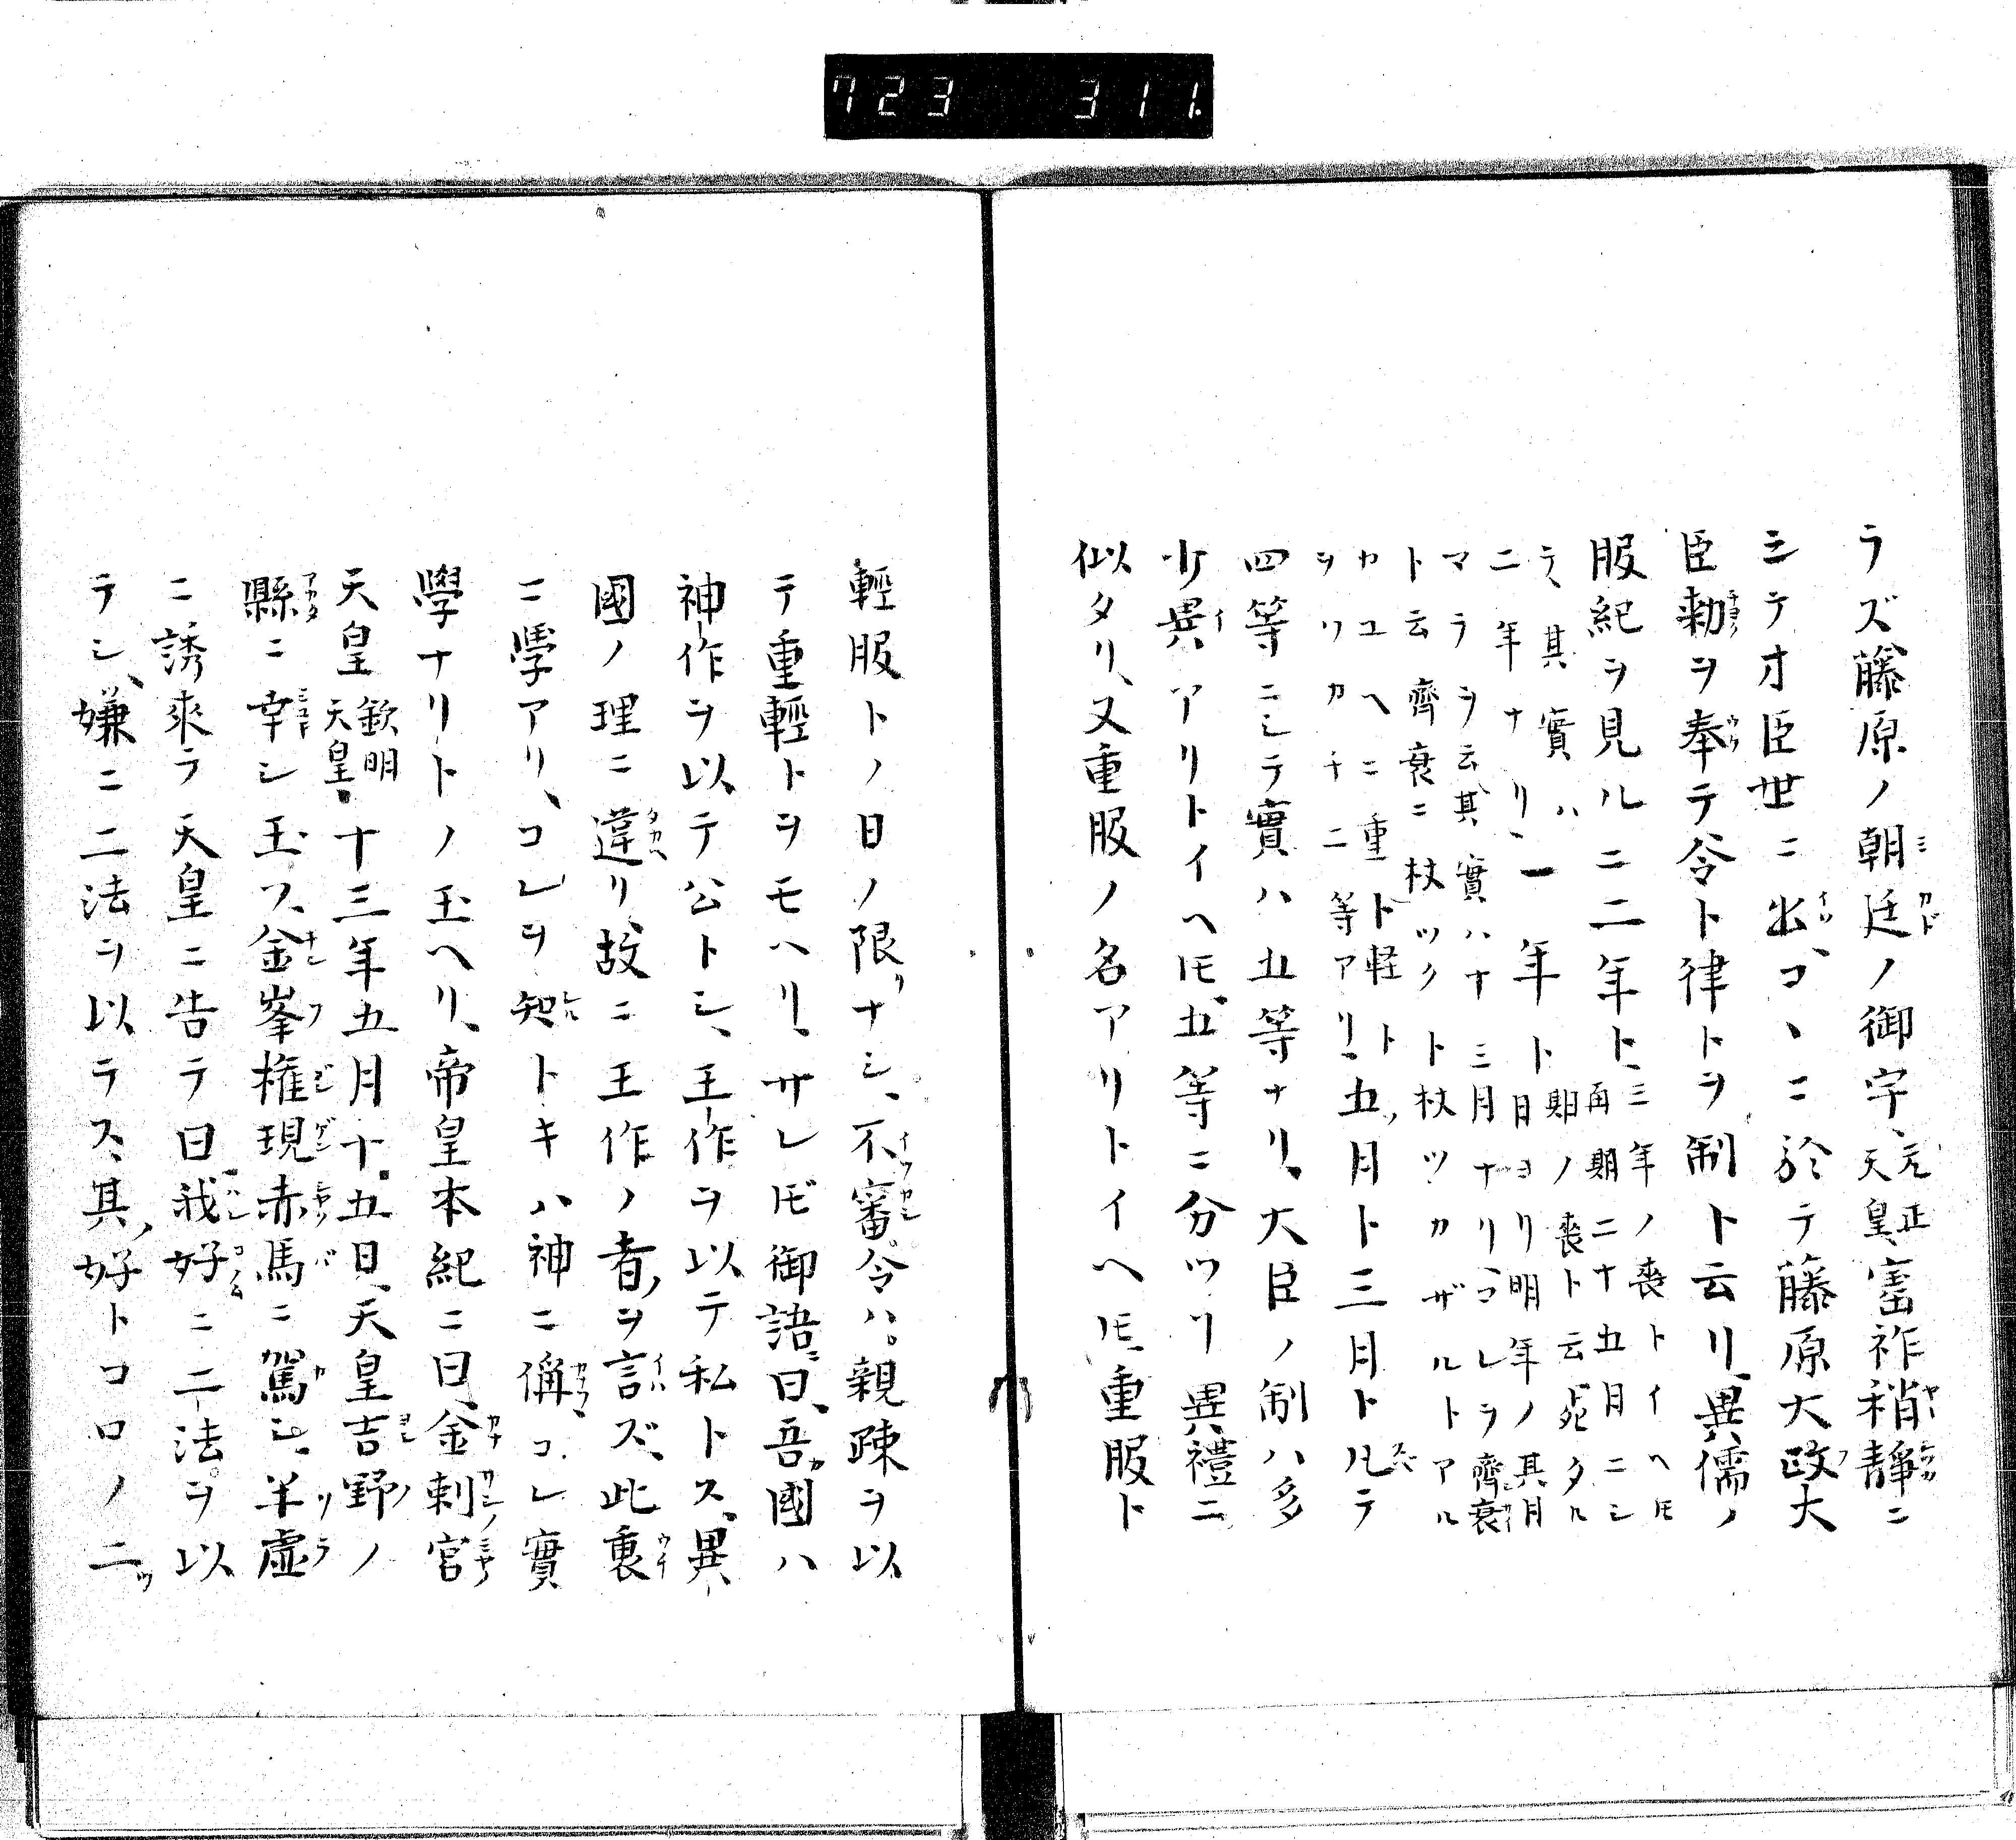 723 311.
ラズ藤原ノ朝廷ノ御宇、元正天皇、寶祚稍靜ニ
シテオ臣世ニ出、コヽニ於テ藤原大政大
臣勅ヲ奉テ令ト律トヲ制ト云リ、異儒ノ
服紀ヲ見ルニ二年ト、三年ノ喪トイヘ𪜈再期二十五月ニシ
テ、其實ハ二年ナリ、一年ト期ノ喪ト云死タル日ヨリ明年ノ其月
マラヲ云其實ハ十三月ナリ、コレヲ齊衰ト云齊衰ニ杖ツクト杖ツカザルトアル
カユヘニ重ト軽トヲワカチ二等アリ、五月ト三月ト凡テ
四等ニシテ實ハ五等ナリ、大臣ノ制ハ多
少異アリトイヘ𪜈五等ニ分ツリ異禮ニ
似タリ、又重服ノ名アリトイヘ𪜈、重服ト
輕服トノ日ノ限ナシ、不審令ハ。親疎ヲ以
テ重輕トヲモヘリ、サレ𪜈御語ニ曰、吾國ハ
神作ヲ以テ公トシ、王作ヲ以テ私トス、異
國ノ理ニ違リ、故ニ王作ノ者ヲ言ズ、此裏
ニ學アリ、コレヲ知トキハ神ニ偁、コレ實
學ナリトノ玉ヘリ、帝皇本紀ニ曰、金刺宮
天皇欽明天皇、十三年五月十五日、天皇吉野ノ
縣ニ幸シ玉フ、金峯権現赤馬ニ駕シ、半虚
ニ誘來テ天皇ニ告テ曰我好ニ二法ヲ以
テシ、嫌ニ二法ヲ以テス、其好トコロノ二ツ